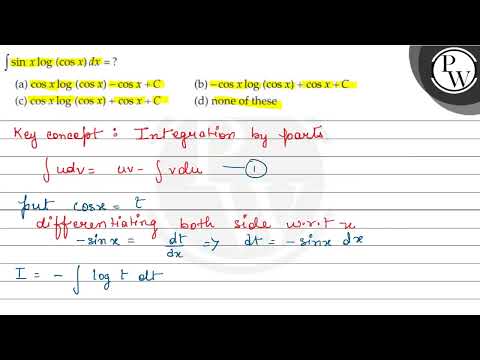 ∫ sin x log (cos x) dx = ?
(a) cos x log (cos x) − cos x + C (b) −cos x log (cos x) + cos x + C
(c) cos x log (cos x) + cos x + C (d) none of these
PW
Key concept : Integration by parts
∫ udv = uv − ∫ vdu — ①
put cosx = t
differentiating both side w.r.t x
−sinx = dt/dx => dt = −sinx dx
I = − ∫ log t dt